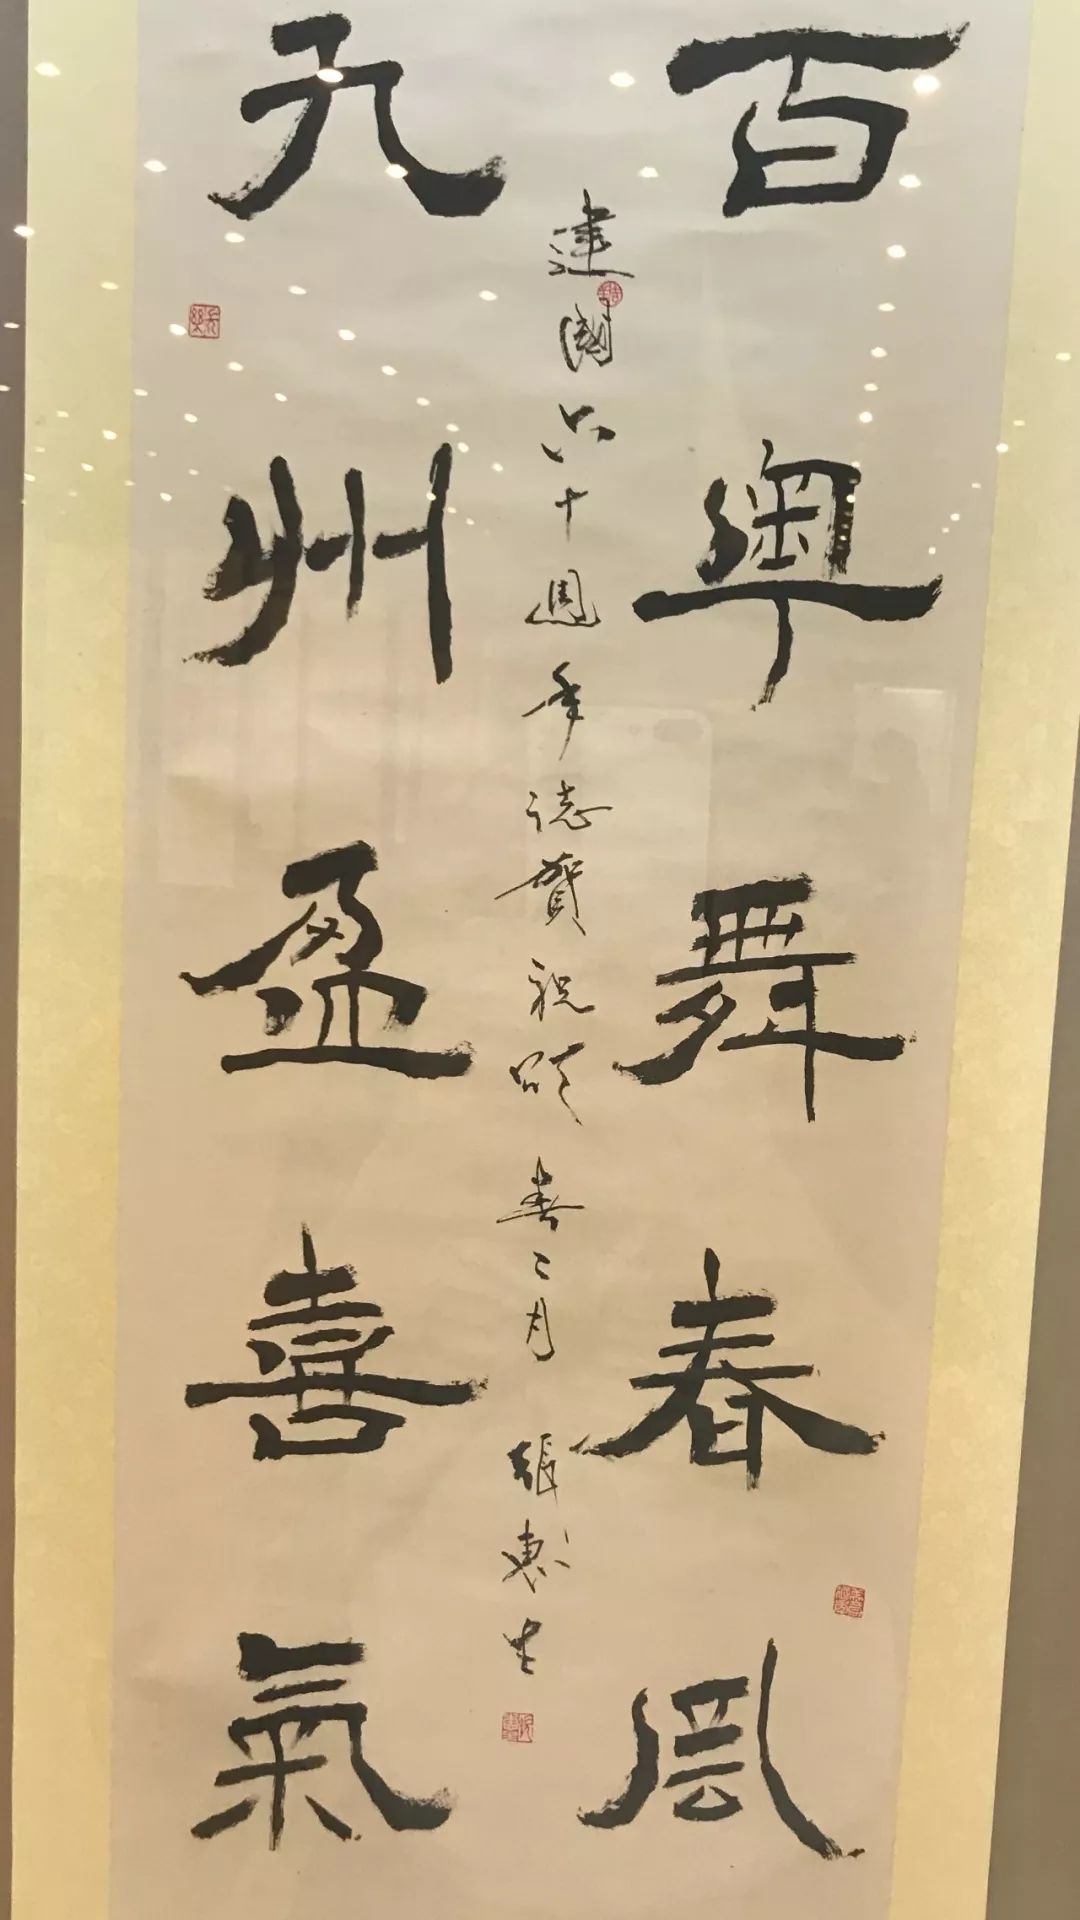 百粵舞春風
建國六十週年誌賀祝頌 春二月 張惠生
九州盈喜氣